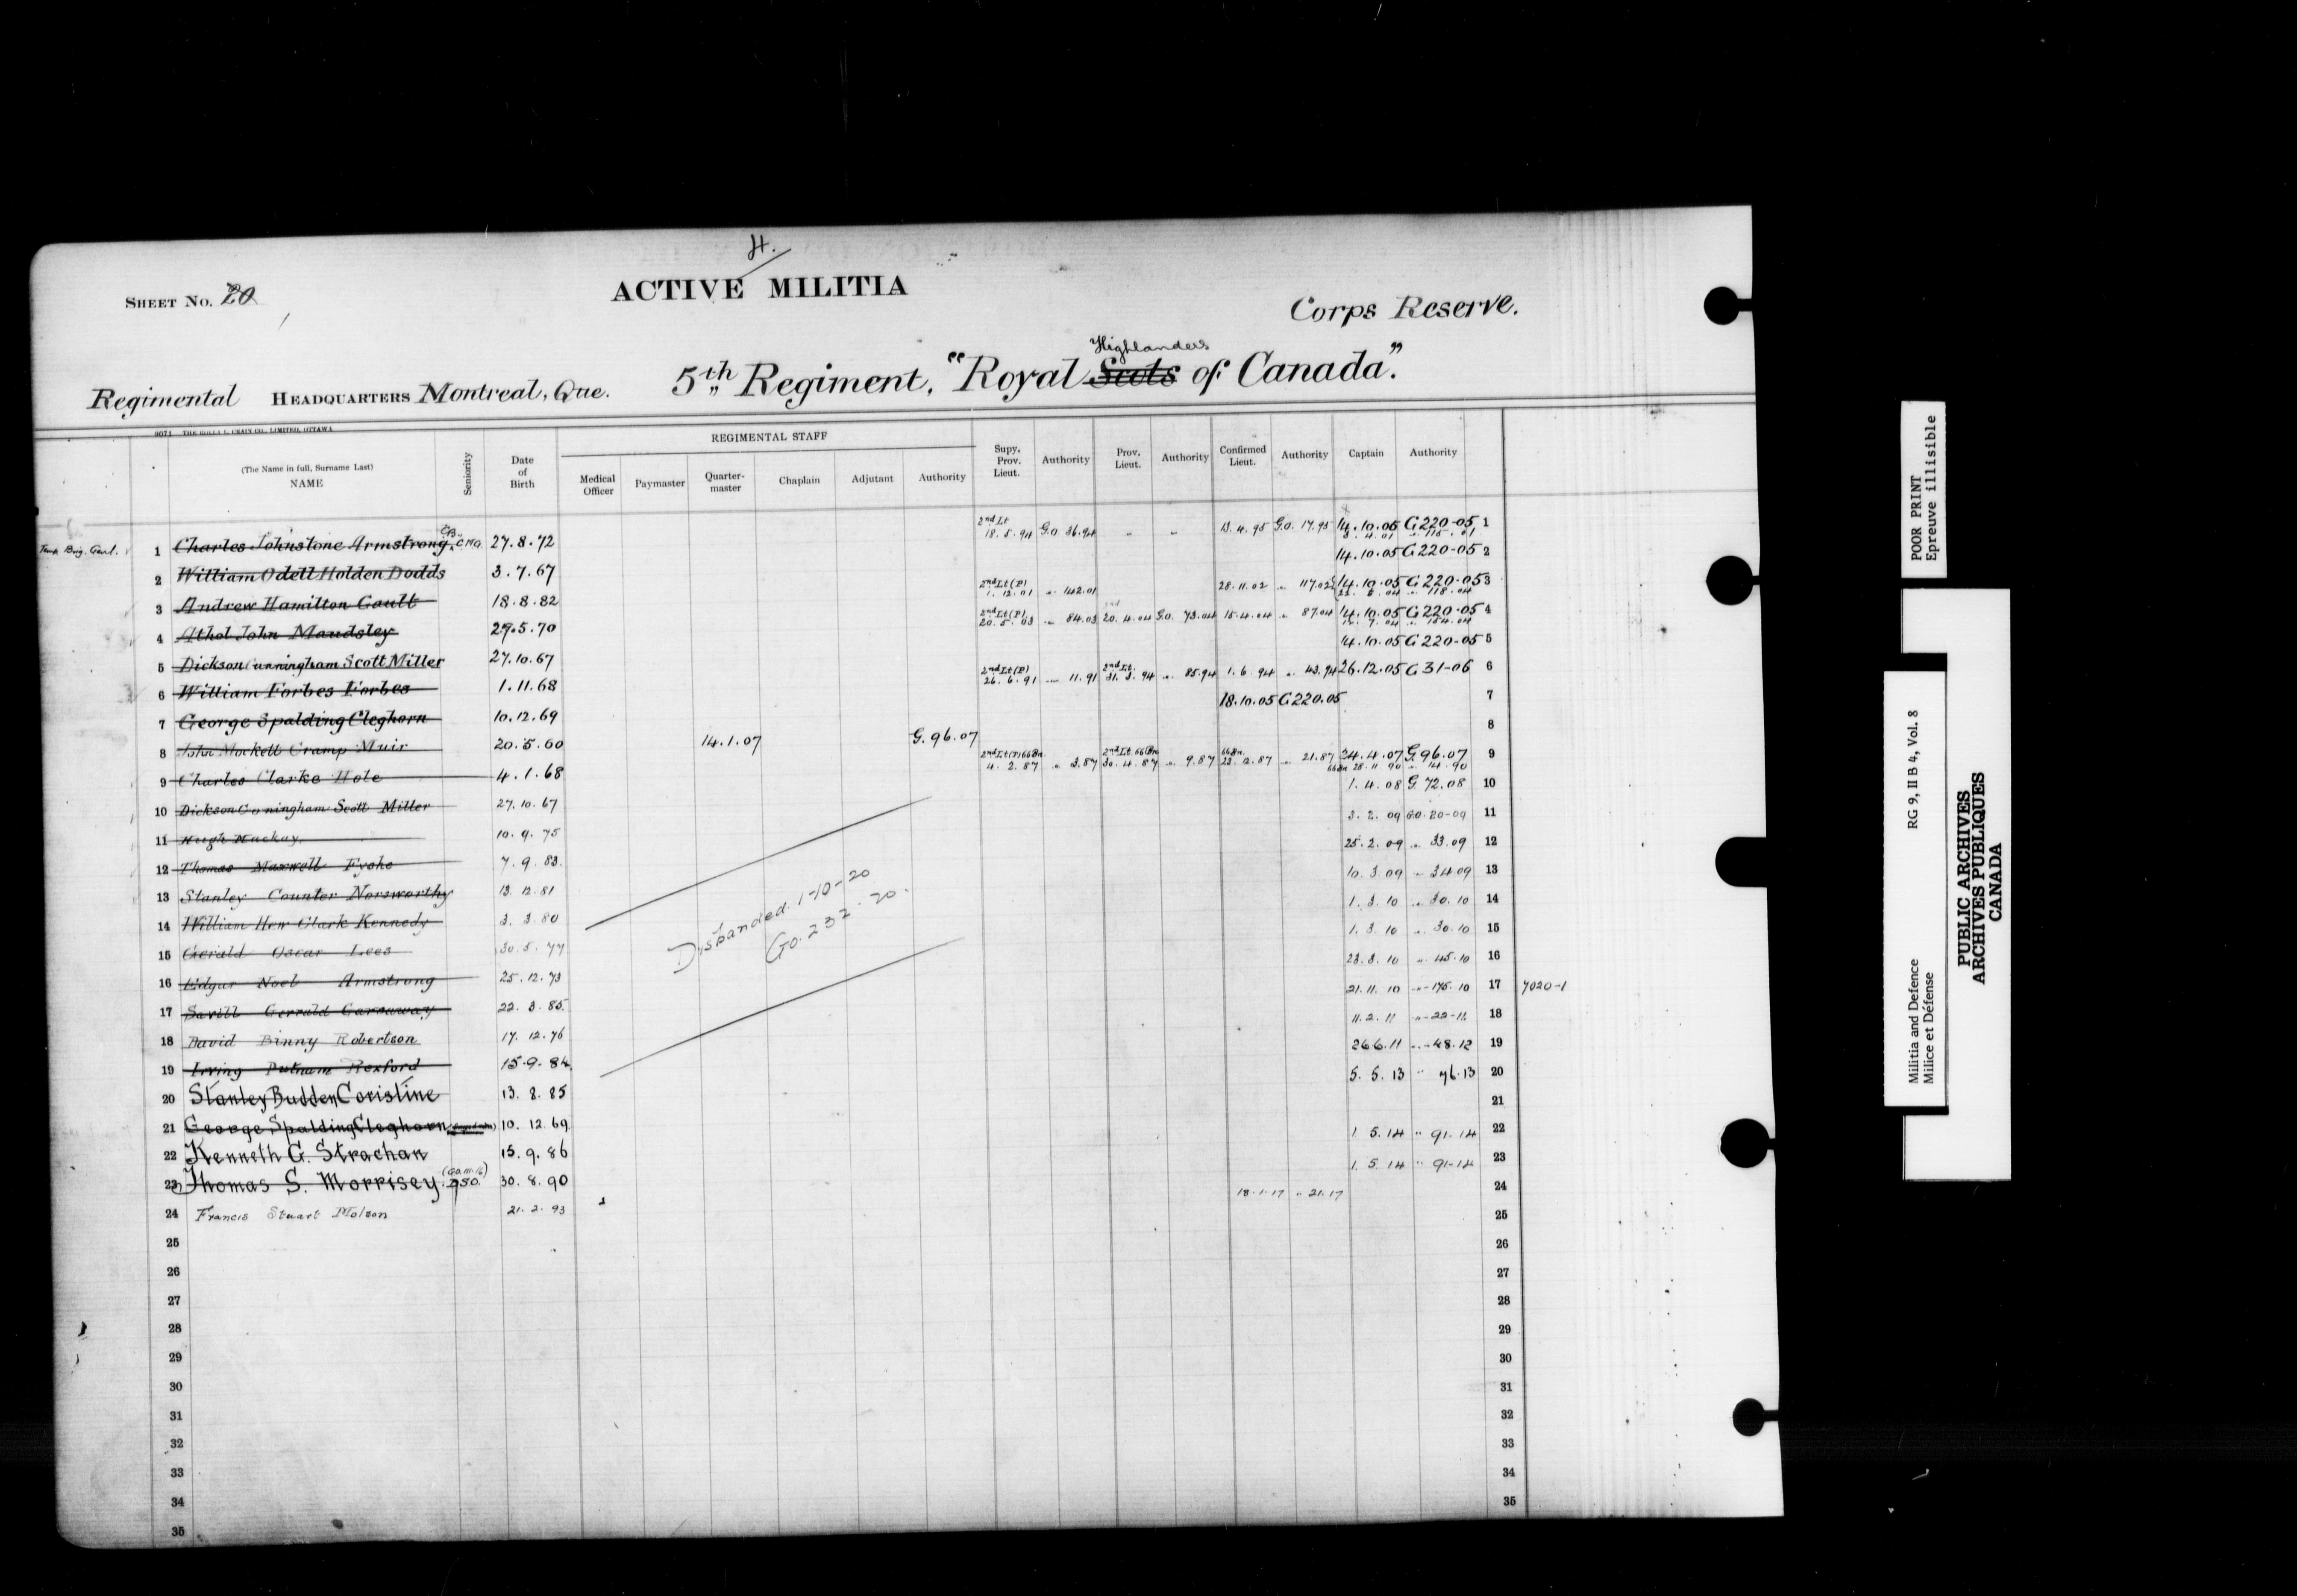 4.
SHEET No. 20
ACTIVE MILITIA
Corps Reserve.
Highlanders
Regimental HEADQUARTERS Montreal, Que. 5th Regiment, "Royal Scots of Canada".
9071 THE ROLLA L. CRAIN CO., LIMITED, OTTAWA
(The Name in full, Surname Last) NAME Seniority Date of Birth REGIMENTAL STAFF Medical Officer Paymaster Quarter-master Chaplain Adjutant Authority Supy. Prov. Lieut. Authority Prov. Lieut. Authority Confirmed Lieut. Authority Captain Authority
Temp Brig. Genl. 1 Charles Johnstone Armstrong, C.B., C.M.G. 27.8.72 2nd Lt 18.5.94 G.O 36.94 - - 13.4.95 G.O. 17.95 14.10.05 G 220-05 1
3.4.01 " 115.01
2 William Odell Holden Dodds 3.7.67 14.10.05 G 220-05 2
3 Andrew Hamilton Gault 18.8.82 2nd Lt (P) 1.12.01 " 142.01 28.11.02 " 117.02 14.10.05 G 220-05 3
" 118.04
4 Athol John Maudsley 27.5.70 2nd Lt (P) 20.5.03 " 84.03 20.4.04 G.O. 73.04 15.4.04 " 87.04 14.10.05 G 220-05 4
" 154.04
5 Dickson Cunningham Scott Miller 27.10.67 14.10.05 G 220-05 5
6 William Forbes Forbes 1.11.68 2nd Lt (P) 26.6.91 " 11.91 2nd Lt. 31.3.94 " 85.94 1.6.94 " 43.94 26.12.05 G 31-06 6
7 George Spalding Cleghorn 10.12.69 18.10.05 G 220.05 7
8 John Mockett Cramp Muir 20.5.60 14.1.07 G. 96.07 8
9 Charles Clarke Hole 4.1.68 2nd Lt (P) 66 Bn 4.2.87 " 3.87 2nd Lt. 66 Bn 30.4.87 " 9.87 66 Bn 23.2.87 " 21.87 24.4.07 G. 96.07 9
66 Bn 28.11.90 " 14.90
10 Dickson Cuningham Scott Miller 27.10.67 1.4.08 G. 72.08 10
11 Hugh Mackay 10.9.75 3.2.09 G.O. 20-09 11
12 Thomas Maxwell Fyshe 7.9.83. 25.2.09 " 33.09 12
13 Stanley Counter Norsworthy 13.12.81 10.3.09 " 34.09 13
14 William Hew Clark Kennedy 3.3.80 1.3.10 " 30.10 14
15 Gerald Oscar Lees 30.5.77 1.3.10 " 30.10 15
16 Edgar Noel Armstrong 25.12.73 23.3.10 " 45.10 16
17 Savill Gerrald Carraway 22.3.85. 21.11.10 " 175.10 17 7020-1
18 David Binny Robertson 17.12.76 11.2.11 " 22-11. 18
19 Irving Putnam Rexford 15.9.84. 26.6.11 " 48.12 19
20 Stanley Budden Coristine 13.8.85 5.5.13 " 76.13 20
21 George Spalding Cleghorn 10.12.69 21
22 Kenneth G. Strachan 15.9.86 1.5.14 " 91-14 22
23 Thomas S. Morrisey. (G.O. 111.16) D.S.O. 30.8.90 1.5.14 " 91-14 23
24 Francis Stuart Molson 21.2.93 18.1.17 " 21.17 24
Disbanded 1-10-20
G.O. 232.20.
25 25
26 26
27 27
28 28
29 29
30 30
31 31
32 32
33 33
34 34
35 35
POOR PRINT
Epreuve illisible
Militia and Defence RG 9, II B 4, Vol. 8
Milice et Défense
PUBLIC ARCHIVES
ARCHIVES PUBLIQUES
CANADA